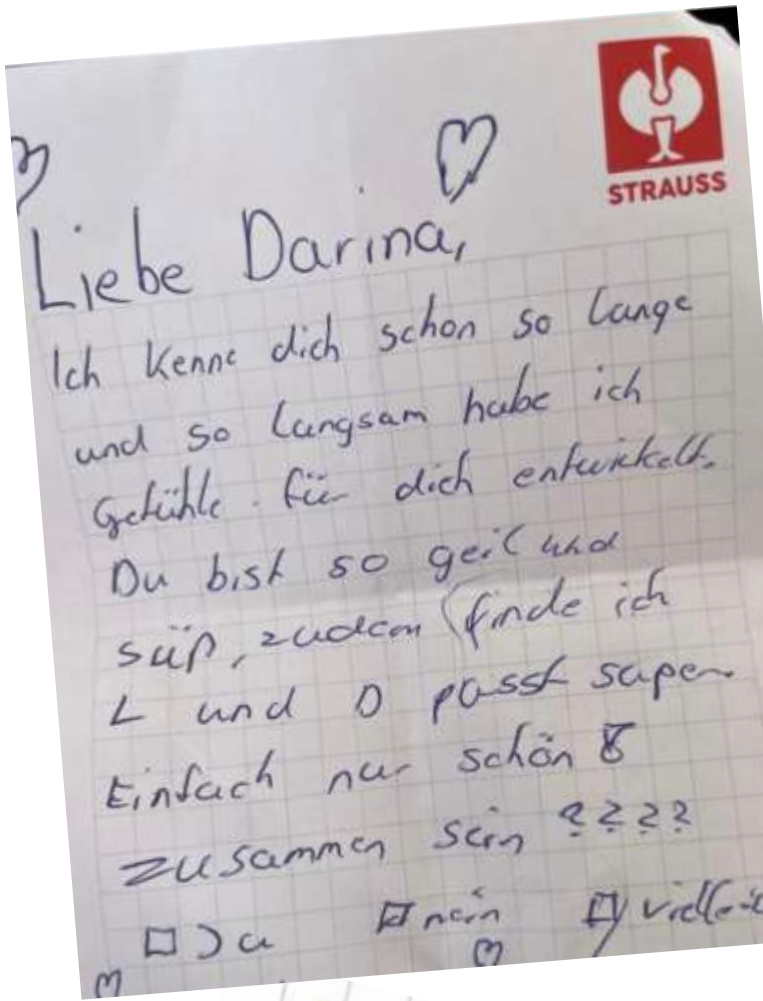 STRAUSS
Liebe Darina,
Ich kenne dich schon so lange
und so langsam habe ich
Gefühle für dich entwickelt.
Du bist so geil und
süß, zudem finde ich
L und D passt super
Einfach nur schön
zusammen sein ????
Ja nein